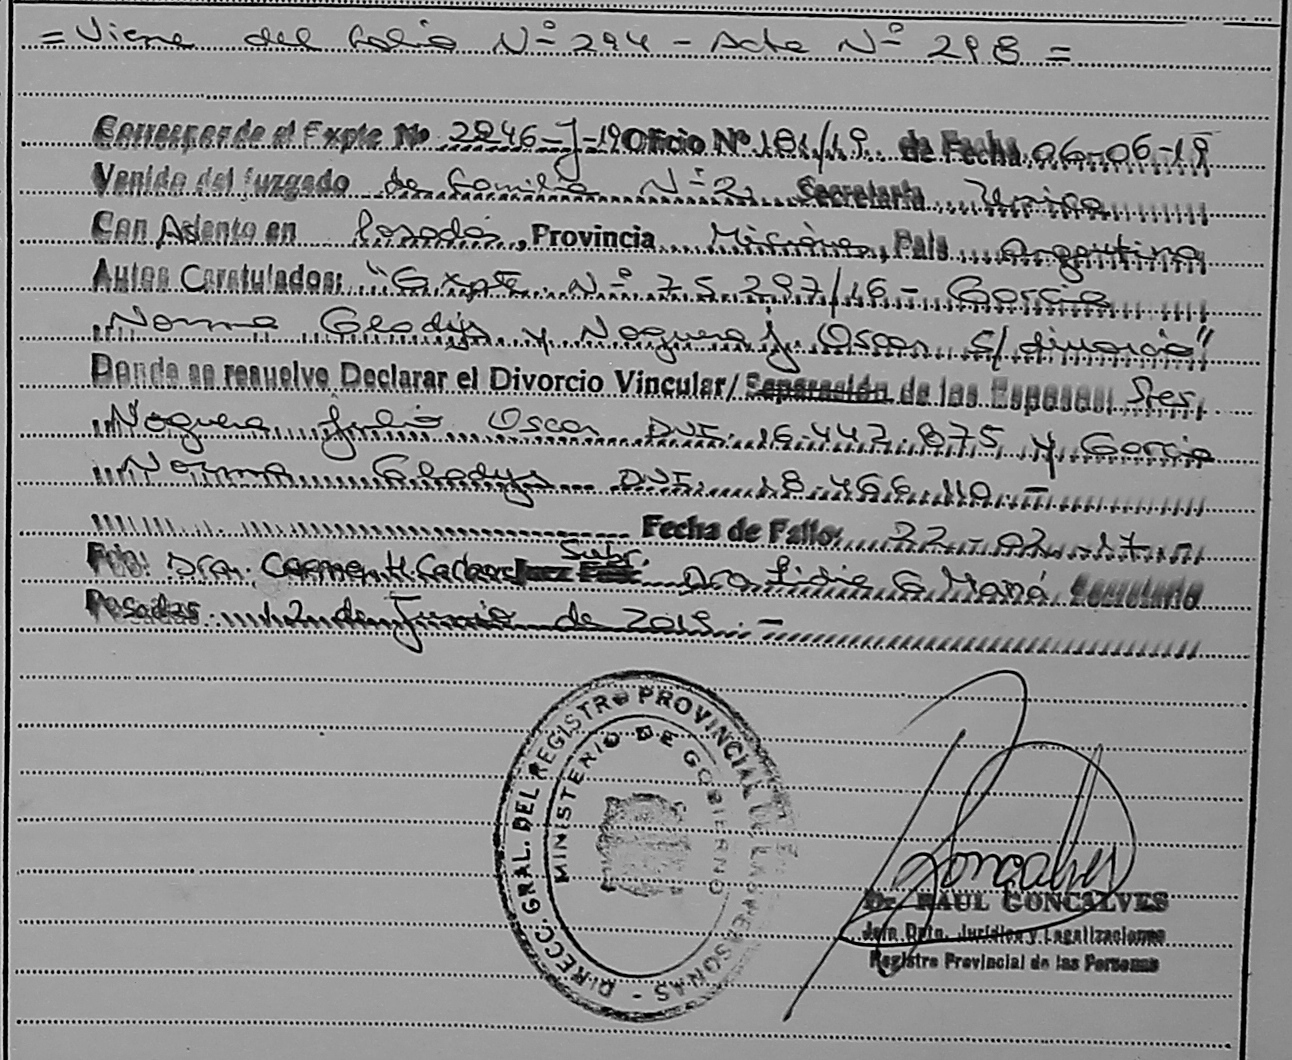 = Viene del folio Nº 294 - Acta Nº 298 =
Corresponde al Expte No 2246-J-19 Oficio Nº 181/19 de Fecha 06-06-19
Venido del Juzgado de Familia Nº 2 Secretaria Unica
Con Asiento en Posadas, Provincia Misiones, Pais Argentina
Autos Caratulados: "Expte Nº 75.297/16 - Garcia
Norma Gladys y Noguera J. Oscar S/divorcio"
Donde se resuelve Declarar el Divorcio Vincular/Separación de los Esposos: Sres,
Noguera Julio Oscar DNI. 16.447.875 y Garcia
Norma Gladys DNI. 18.466.110.-
Fecha de Fallo: 22-02-17
Fdo: Dra. Carmen H. Juez Subr. Dra Lidia G. Secretario
Posadas 12 de Junio de 2019.-
DIRECC. GRAL. DEL REGISTRO PROVINCIAL DE LAS PERSONAS -
MINISTERIO DE GOBIERNO
Dr. RAUL GONCALVES
Jefe Dpto. Jurídico y Legalizaciones
Registro Provincial de las Personas